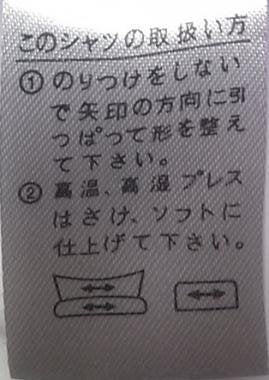 このシャツの取扱い方
①のりつけをしない
で矢印の方向に引
っぱって形を整え
て下さい。
②高温、高湿プレス
はさけ、ソフトに
仕上げて下さい。